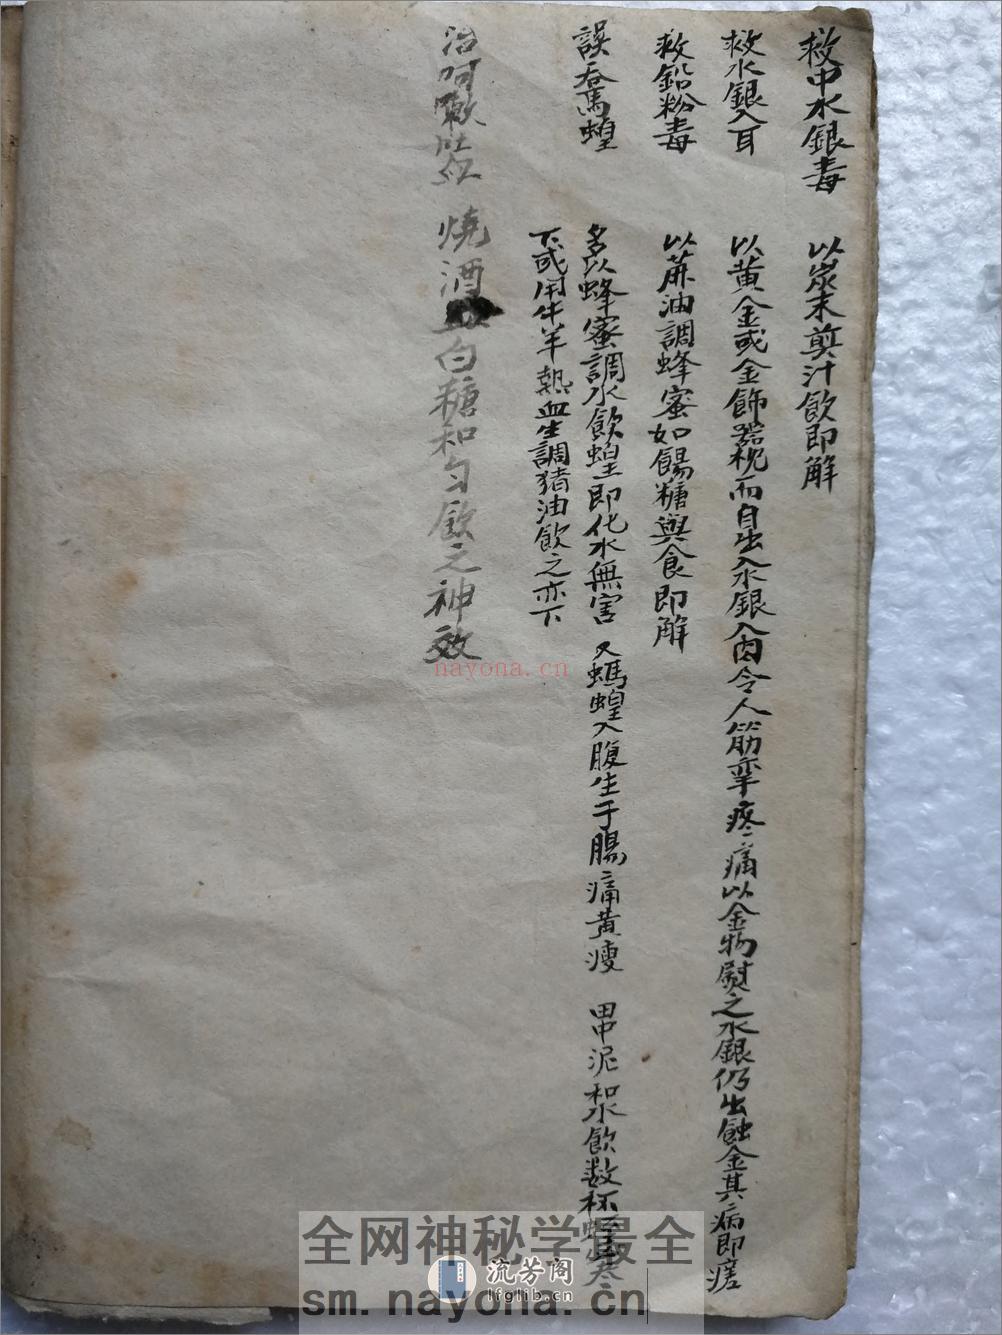 救中水銀毒 以炭末煎汁飲即解
救水銀入耳 以黃金或金飾器枕而自出 入水銀入肉令人筋牽疼痛以金物熨之水銀仍出蝕金其病即瘥
救鉛粉毒 以蔴油調蜂蜜如餳糖與食即解
誤吞馬蝗 多以蜂蜜調水飲蝗即化水無害 又螞蝗入腹生子腸痛黃瘦 田中泥和水飲数杯
下或用牛羊熱血生調猪油飲之亦下
治咳吐紅 燒酒白糖和匀飲之神效
nayona.cn
全网神秘学最全
流芳阁
lfglib.cn
sm.nayona.cn